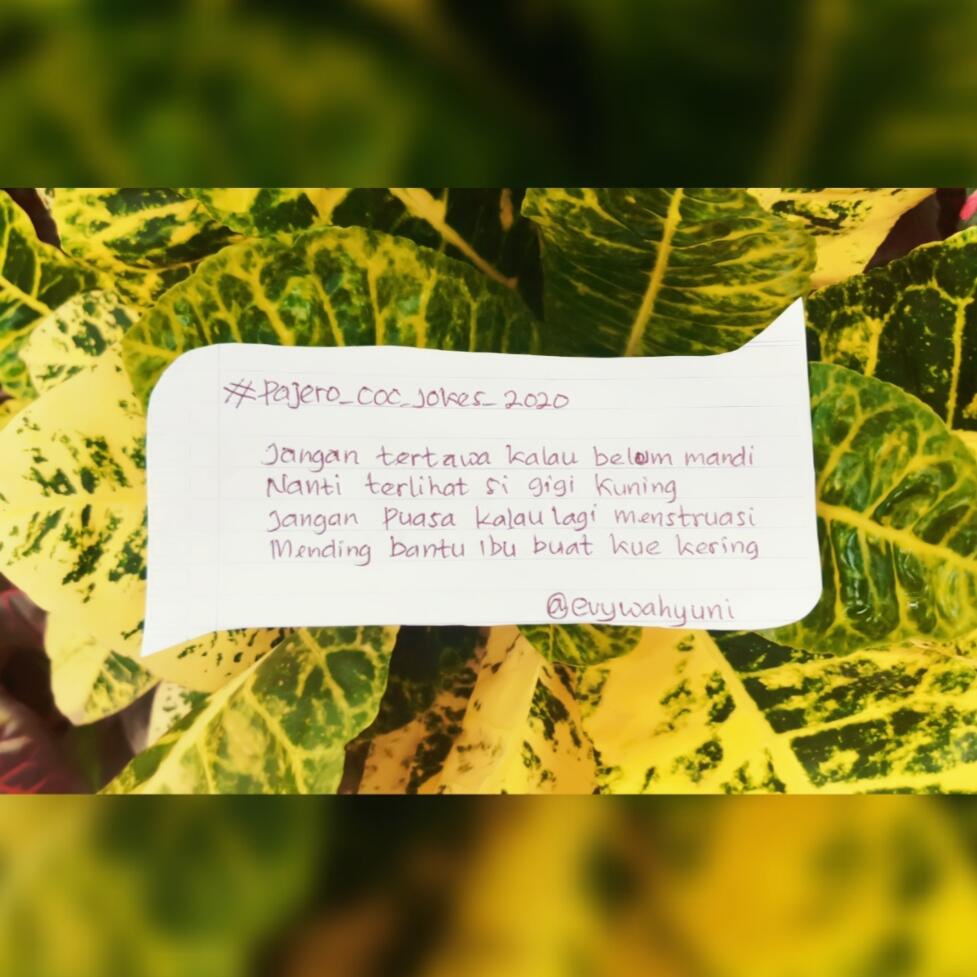 #Pajero_COC_Jokes_2020
Jangan tertawa kalau belum mandi
Nanti terlihat si gigi kuning
Jangan Puasa kalau lagi menstruasi
Mending bantu ibu buat kue kering
@evywahyuni